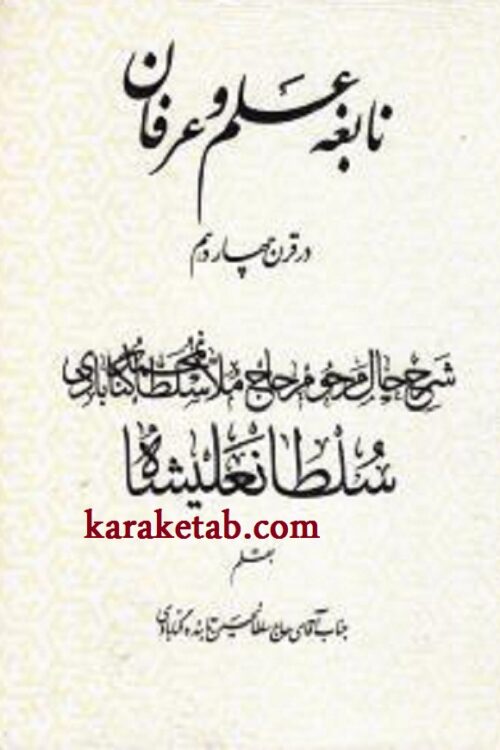 نابغه علم و عرفان
در قرن چهاردهم
شرح حال مرحوم حاج ملا سلطانمحمد گنابادی
سلطانعلیشاه
karaketab.com
بقلم
جناب آقای حاج سلطانحسین تابنده گنابادی